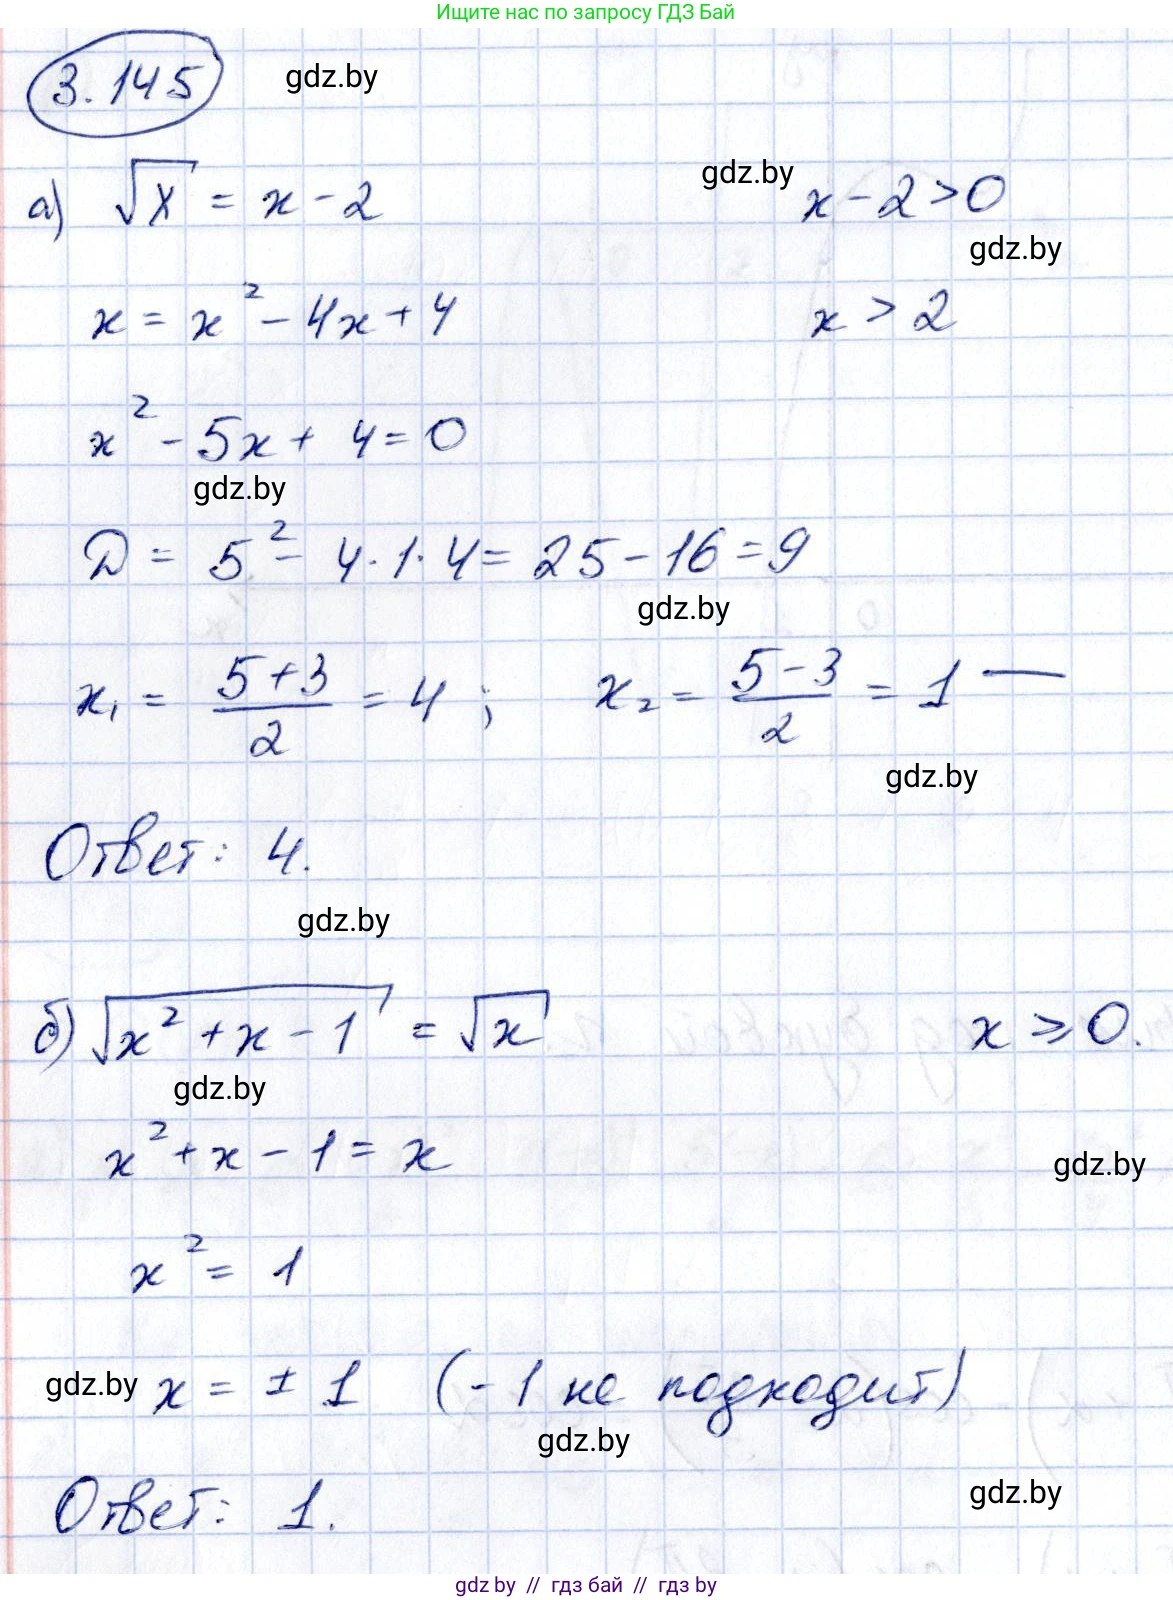 Ищите нас по запросу ГДЗ Бай
3.145 gdz.by
а) √x = x - 2 gdz.by x - 2 > 0
gdz.by
x = x² - 4x + 4 x > 2
x² - 5x + 4 = 0
gdz.by
D = 5² - 4·1·4 = 25 - 16 = 9
gdz.by
x₁ = (5+3)/2 = 4 ; x₂ = (5-3)/2 = 1 —
gdz.by
Ответ: 4.
gdz.by
б) √(x² + x - 1) = √x x ⩾ 0.
gdz.by
x² + x - 1 = x
gdz.by
x² = 1
gdz.by x = ± 1 (-1 не подходит)
gdz.by
Ответ: 1. gdz.by
gdz by // гдз бай // гдз by